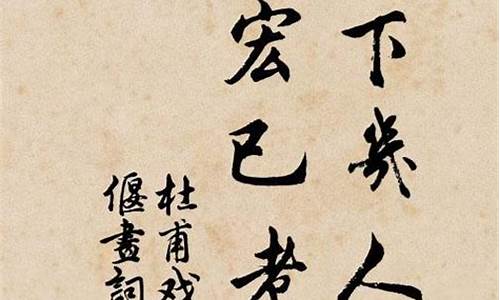 下幾人
宏已老
杜甫戏
偃畫詞